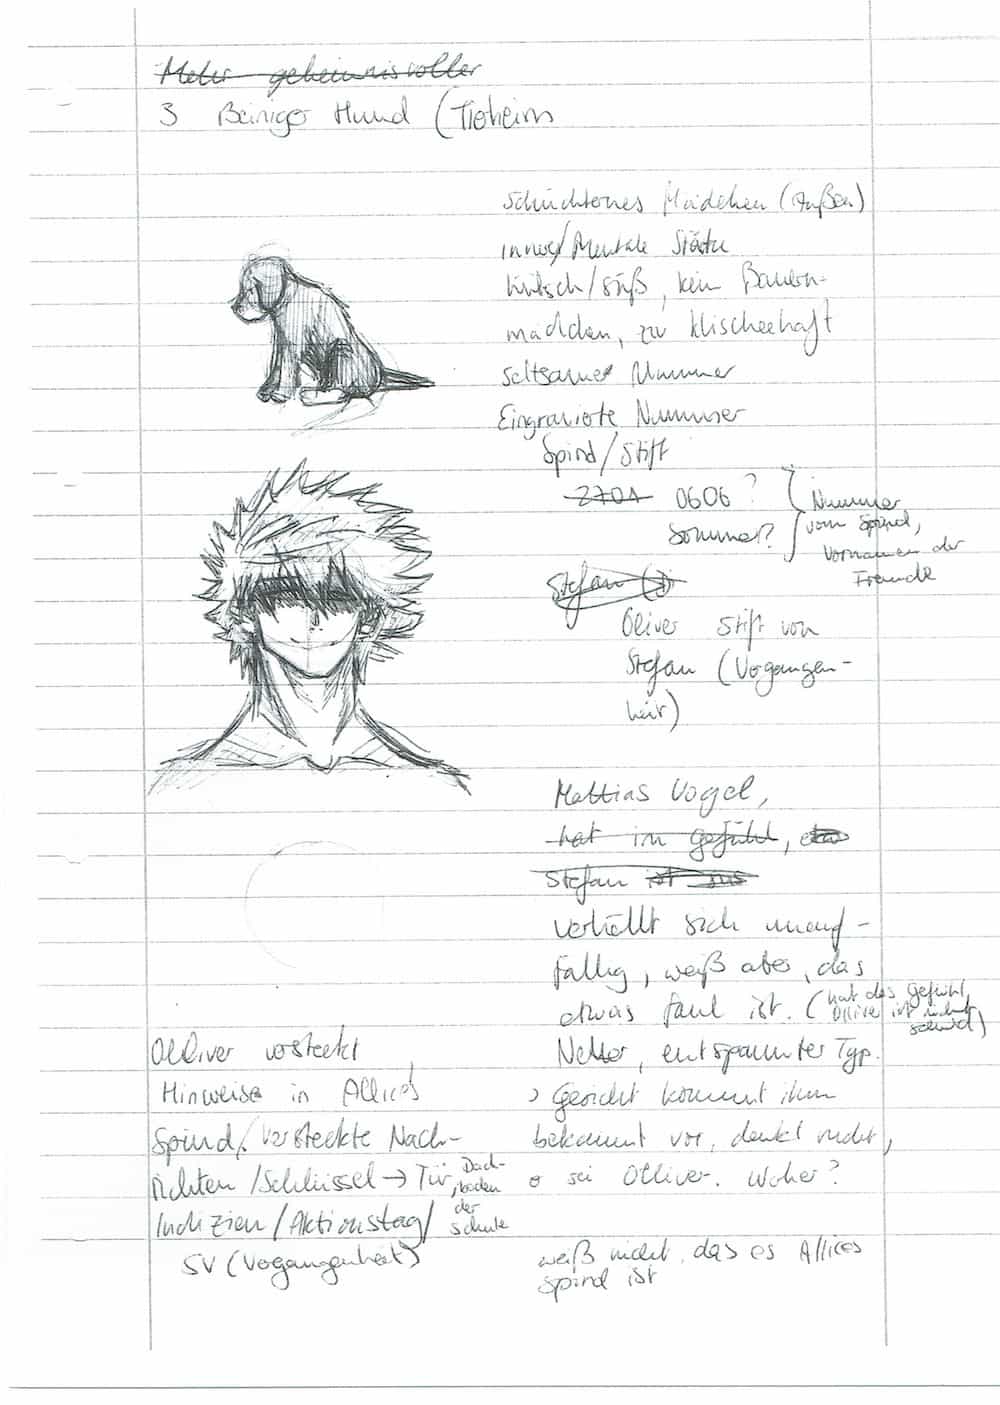 Mehr geheimnisvoller
3 Beiniger Hund (Tierheim
Schüchternes Mädchen (Außen)
innere/Mentale Stärke
kitsch/süß, kein Bauern-
mädchen, zu klischeehaft
seltsame Nummer
Eingravierte Nummer
Spind/Stift
2701 0606 ?
Sommer?
Nummer
vom Spind,
Vornamen der
Freunde
Stefan
Oliver Stift von
Stefan (Vergangen-
heit)
Mattias Vogel,
hat im gefühl, das
Stefan ist ins
verhällt sich unauf-
fällig, weiß aber, das
etwas faul ist. (hat das Gefühl,
Olliver ist nicht
schuld)
Netter, entspannter Typ.
Gesicht kommt ihm
bekannt vor, denkt nicht,
er sei Olliver. Woher?
weiß nicht, das es Allices
Spind ist
Olliver versteckt
Hinweise in Allices
Spind/versteckte Nach-
richten/Schlüssel → Tür, Dach-
boden
der
Schule
Indizien/Aktionstag/
SV (Vergangenheit)